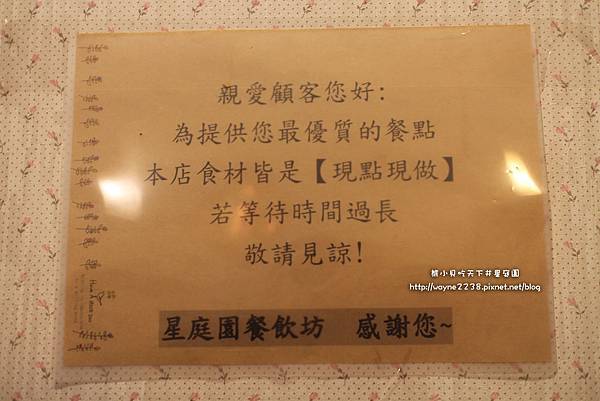 親愛顧客您好:
為提供您最優質的餐點
本店食材皆是【現點現做】
若等待時間過長
敬請見諒!
熊小貝吃天下井星庭園
http://wayne2238.pixnet.net/blog
星庭園餐飲坊 感謝您~